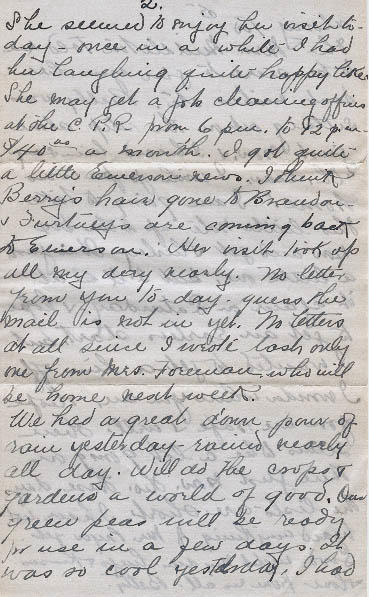 2.
She seemed to enjoy her visit to-
day - once in a while I had
her laughing quite happy like.
She may get a job cleaning offices
at the C.P.R. from 6 p.m. to 12 p.m.
$40⁰⁰ a month. I got quite
a little Emerson news. I think
Berry's have gone to Brandon
& Furtney's are coming back
to Emerson. Her visit took up
all my day nearly. No letter
from you to-day. guess the
mail is not in yet. No letters
at all since I wrote last only
one from Mrs. Foreman, who will
be home next week.
We had a great down pour of
rain yesterday - rained nearly
all day. Will do the crops &
gardens a world of good. Our
green peas will be ready
for use in a few days. It
was so cool yesterday. I had